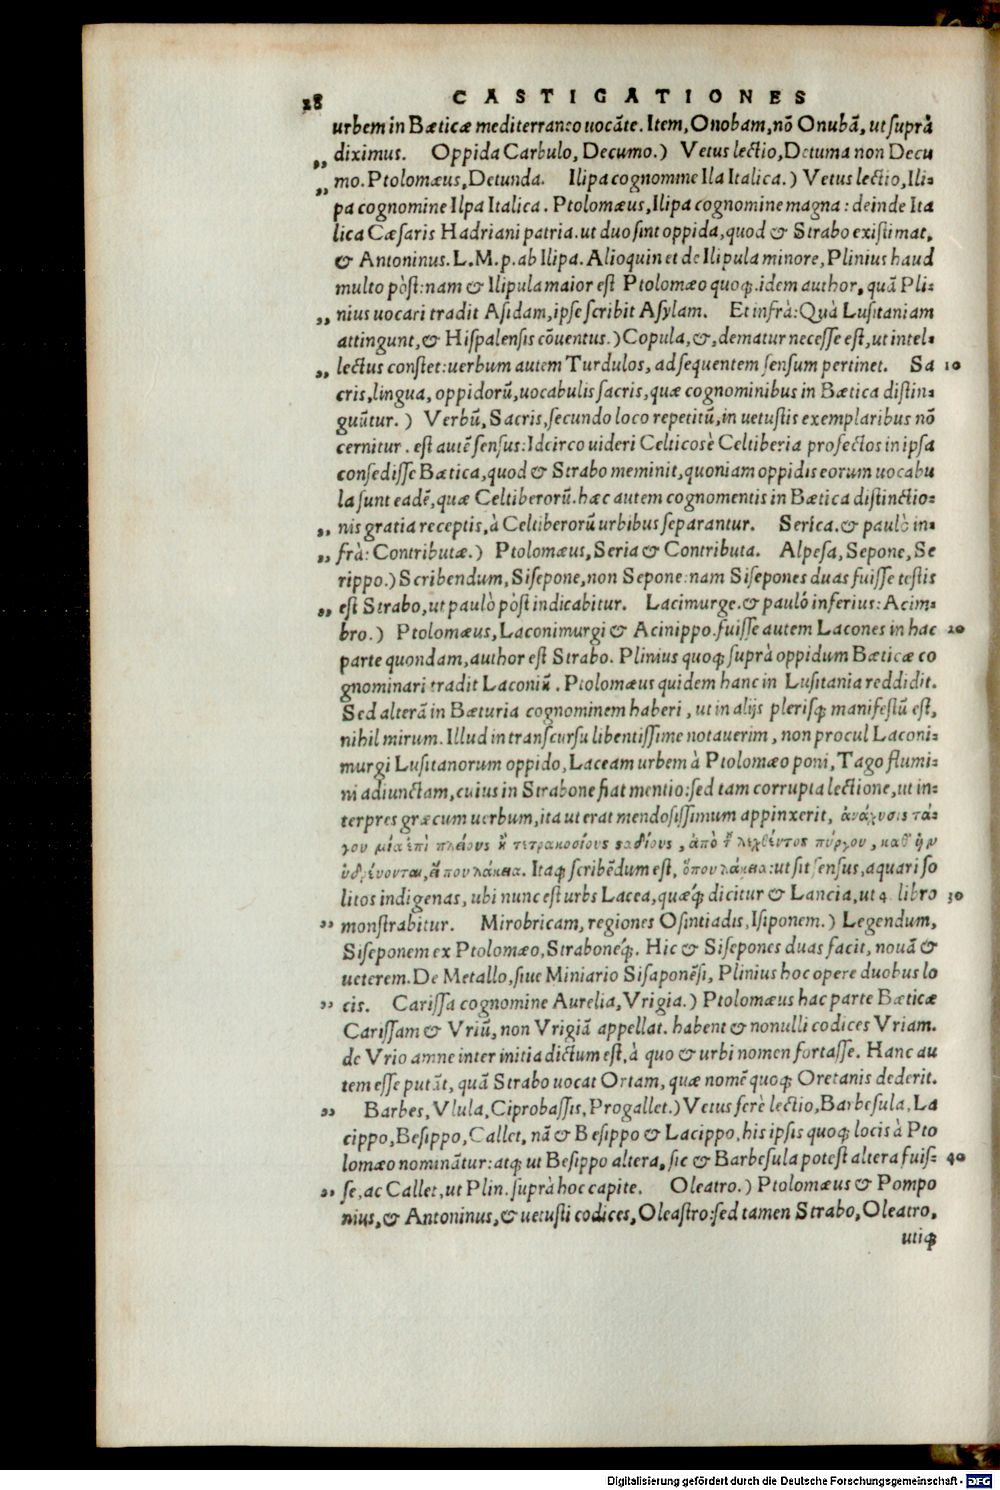 28 CASTIGATIONES
urbem in Bæticæ mediterraneo uocāte. Item, Onobam, nō Onubā, ut suprà
diximus. Oppida Carbulo, Decumo.) Vetus lectio, Detuma non Decu
mo. Ptolomæus, Detunda. Ilipa cognomine Ila Italica.) Vetus lectio, Ili-
pa cognomine Ilpa Italica. Ptolomæus, Ilipa cognomine magna: deinde Ita
lica Cæsaris Hadriani patria. ut duo sint oppida, quod & Strabo existimat,
& Antoninus. L. M. p. ab Ilipa. Alioquin et de Ilipula minore, Plinius haud
multo pòst: nam & Ilipula maior est Ptolomæo quoq;. idem author, quā Pli-
nius uocari tradit Asidam, ipse scribit Asylam. Et infrà: Quà Lusitaniam
attingunt, & Hispalensis cōuentus.) Copula, &, dematur necesse est, ut intel-
lectus constet: uerbum autem Turdulos, ad sequentem sensum pertinet. Sa 10
cris, lingua, oppidorū, uocabulis sacris, quæ cognominibus in Bætica distin-
guūtur.) Verbū, Sacris, secundo loco repetitū, in uetustis exemplaribus nō
cernitur. est autē sensus: Idcirco uideri Celticos è Celtiberia profectos in ipsa
consedisse Bætica, quod & Strabo meminit, quoniam oppidis eorum uocabu
la sunt eadē, quæ Celtiberorū. hæc autem cognomentis in Bætica distinctio-
nis gratia receptis, à Celtiberorū urbibus separantur. Serica. & paulò in-
frà: Contributæ.) Ptolomæus, Seria & Contributa. Alpesa, Sepone, Se
rippo.) Scribendum, Sisepone, non Sepone: nam Sisepones duas fuisse testis
est Strabo, ut paulò pòst indicabitur. Lacimurge. & pauló inferius: Acim-
bro.) Ptolomæus, Laconimurgi & Acinippo. fuisse autem Lacones in hac 20
parte quondam, author est Strabo. Plinius quoq; suprà oppidum Bæticæ co
gnominari tradit Laconiū. Ptolomæus quidem hanc in Lusitania reddidit.
Sed alterā in Bæturia cognominem haberi, ut in alijs plerisq; manifestū est,
nihil mirum. Illud in transcursu libentissime notauerim, non procul Laconi-
murgi Lusitanorum oppido, Laceam urbem à Ptolomæo poni, Tago flumi-
ni adiunctam, cuius in Strabone fiat mentio: sed tam corrupta lectione, ut in-
terpres græcum uerbum, ita ut erat mendosissimum appinxerit, ἀνάχυσις τά-
γου μία ἐπὶ πλείους ἢ τετρακοσίους σαδίους, ἀπὸ τ λεχθέντος πύργου, καθ᾽ ἣν
ὑδρεύονται, ἢ που λάκεια. Itaq; scribēdum est, ὅπου λάκεια: ut sit sensus, aquari so
litos indigenas, ubi nunc est urbs Lacea, quæq́; dicitur & Lancia, ut 4. libro 30
monstrabitur. Mirobricam, regiones Osintiadis, Isiponem.) Legendum,
Siseponem ex Ptolomæo, Straboneq́;. Hic & Sisepones duas facit, nouā &
ueterem. De Metallo, siue Miniario Sisaponēsi, Plinius hoc opere duobus lo
cis. Carissa cognomine Aurelia, Vrigia.) Ptolomæus hac parte Bæticæ
Carissam & Vriū, non Vrigiā appellat. habent & nonulli codices Vriam.
de Vrio amne inter initia dictum est, à quo & urbi nomen fortasse. Hanc au
tem esse putāt, quā Strabo uocat Ortam, quæ nomē quoq; Oretanis dederit.
Barbes, Vlula, Ciprobassis, Progallet.) Vetus ferè lectio, Barbesula, La
cippo, Besippo, Callet, nā & Besippo & Lacippo, his ipsis quoq; locis à Pto
lomæo nominātur: atq; ut Besippo altera, sic & Barbesula potest altera fuis- 40
se, ac Callet, ut Plin. suprà hoc capite. Oleatro.) Ptolomæus & Pompo
nius, & Antoninus, & uetusti codices, Oleastro: sed tamen Strabo, Oleatro,
utiq;
Digitalisierung gefördert durch die Deutsche Forschungsgemeinschaft - DFG